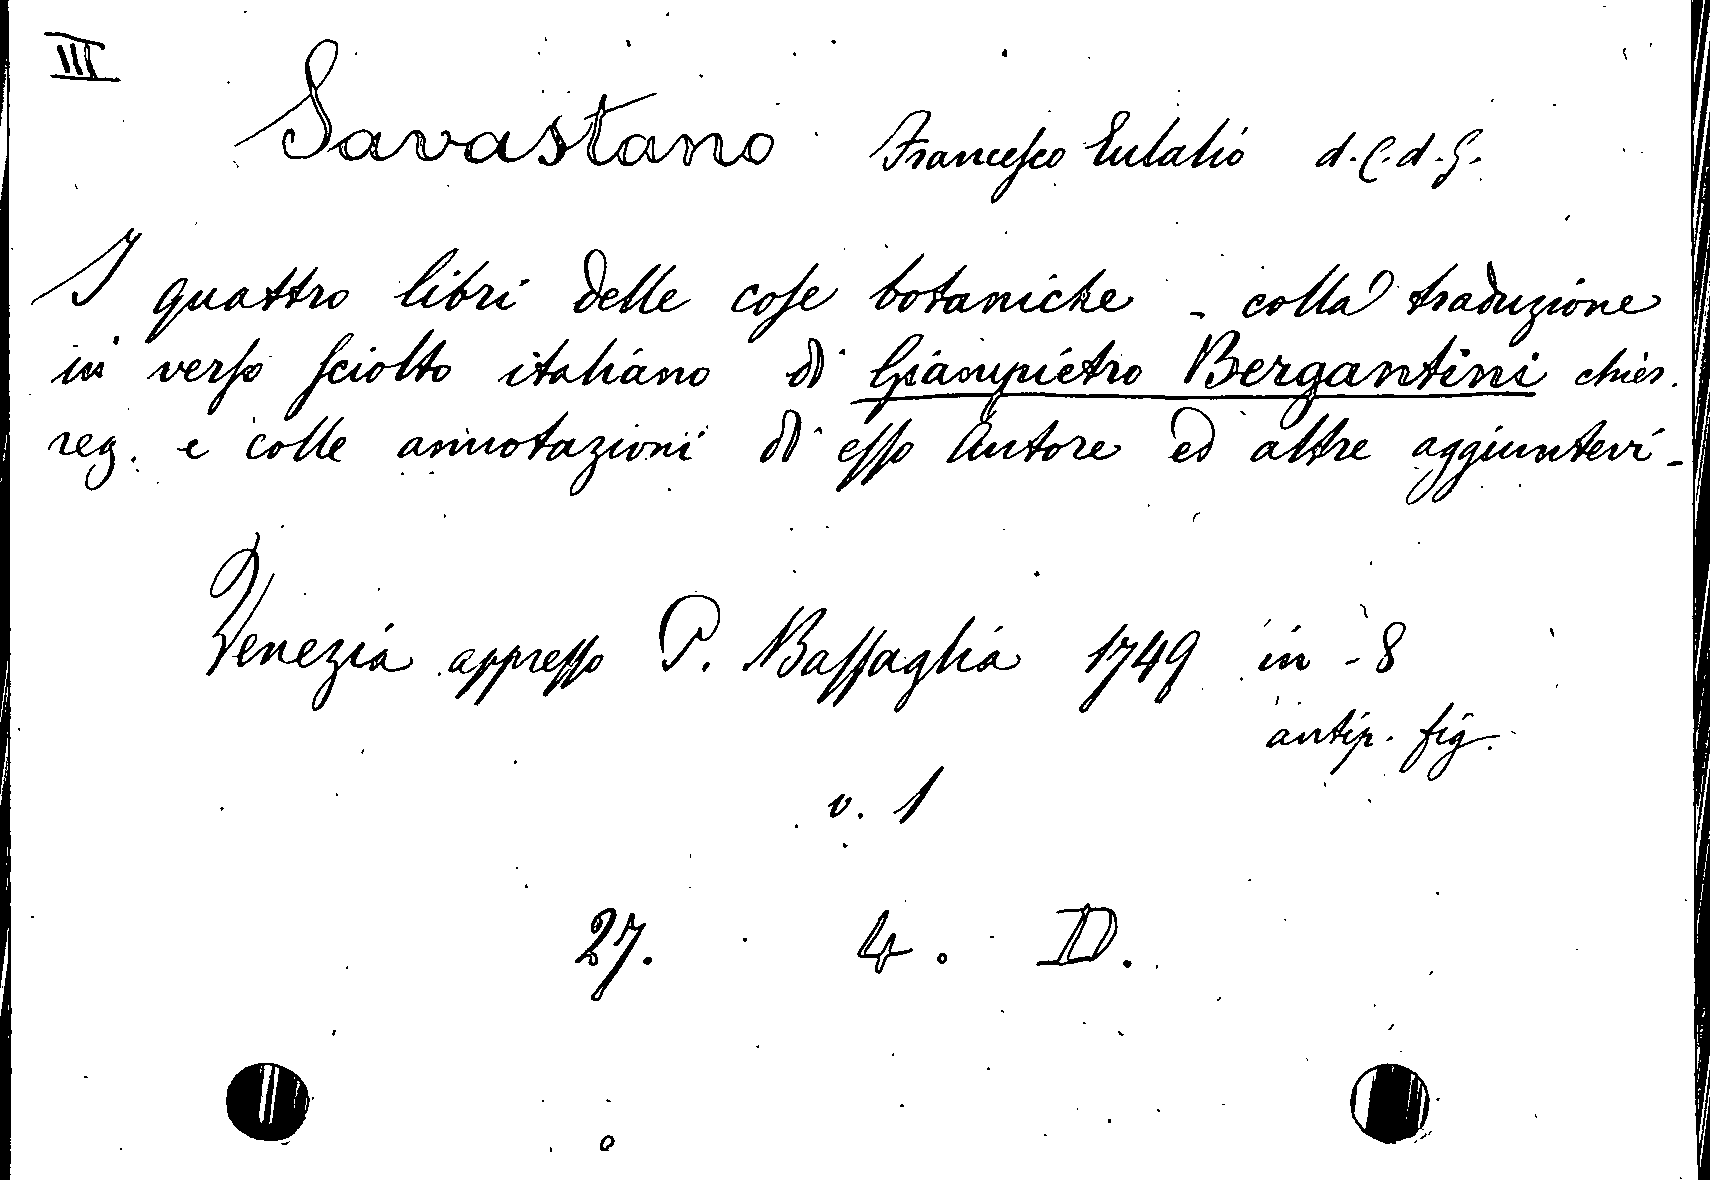 III
Savastano Francesco Eulalio d. C. d. G.
I quattro libri delle cose botaniche - colla traduzione
in verso sciolto italiano di Giampietro Bergantini chier.
reg. e colle annotazioni di esso Autore ed altre aggiuntevi -
Venezia appresso P. Bassaglia 1749 in - 8
antip. fig.
v. 1
27. 4. D.